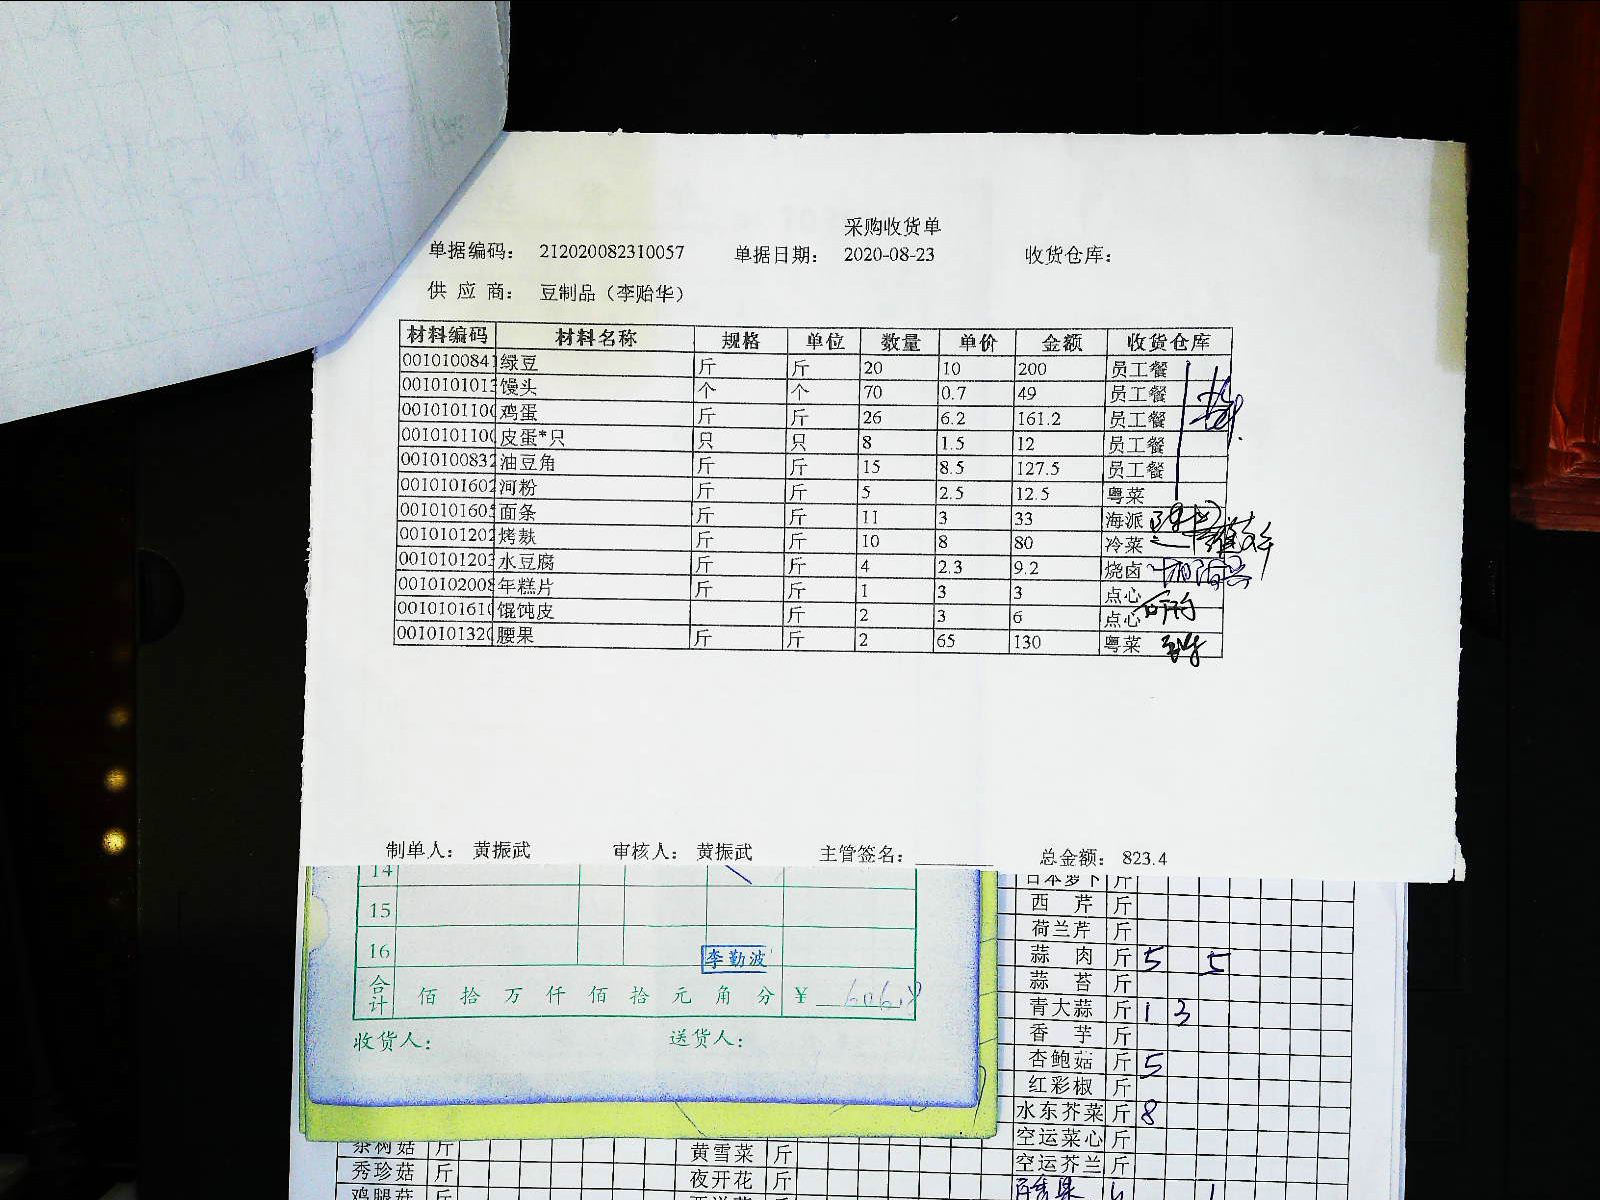 采购收货单
单据编码： 212020082310057 单据日期： 2020-08-23 收货仓库：
供 应 商： 豆制品（李贻华）
材料编码 材料名称 规格 单位 数量 单价 金额 收货仓库
0010100841 绿豆 斤 斤 20 10 200 员工餐
001010101 馒头 个 个 70 0.7 49 员工餐
001010110 鸡蛋 斤 斤 26 6.2 161.2 员工餐
001010110 皮蛋*只 只 只 8 1.5 12 员工餐
001010083 油豆角 斤 斤 15 8.5 127.5 员工餐
001010160 河粉 斤 斤 5 2.5 12.5 粤菜
001010160 面条 斤 斤 11 3 33 海派
001010120 烤麸 斤 斤 10 8 80 冷菜
001010120 水豆腐 斤 斤 4 2.3 9.2 烧卤
001010200 年糕片 斤 斤 1 3 3 点心
001010161 馄饨皮 斤 2 3 6 点心
001010132 腰果 斤 斤 2 65 130 粤菜
制单人： 黄振武 审核人： 黄振武 主管签名： 总金额： 823.4
14
15
16
李勤波
合计 佰 拾 万 仟 佰 拾 元 角 分 ¥ 606.8
收货人： 送货人：
日本萝卜 斤
西 芹 斤
荷兰芹 斤
蒜 肉 斤 5 5
蒜 苔 斤
青大蒜 斤 1 3
香 芋 斤
杏鲍菇 斤 5
红彩椒 斤
水东芥菜 斤 8
茶树菇 斤 黄雪菜 斤 空运菜心 斤
秀珍菇 斤 夜开花 斤 空运芥兰 斤
鸡腿菇 斤